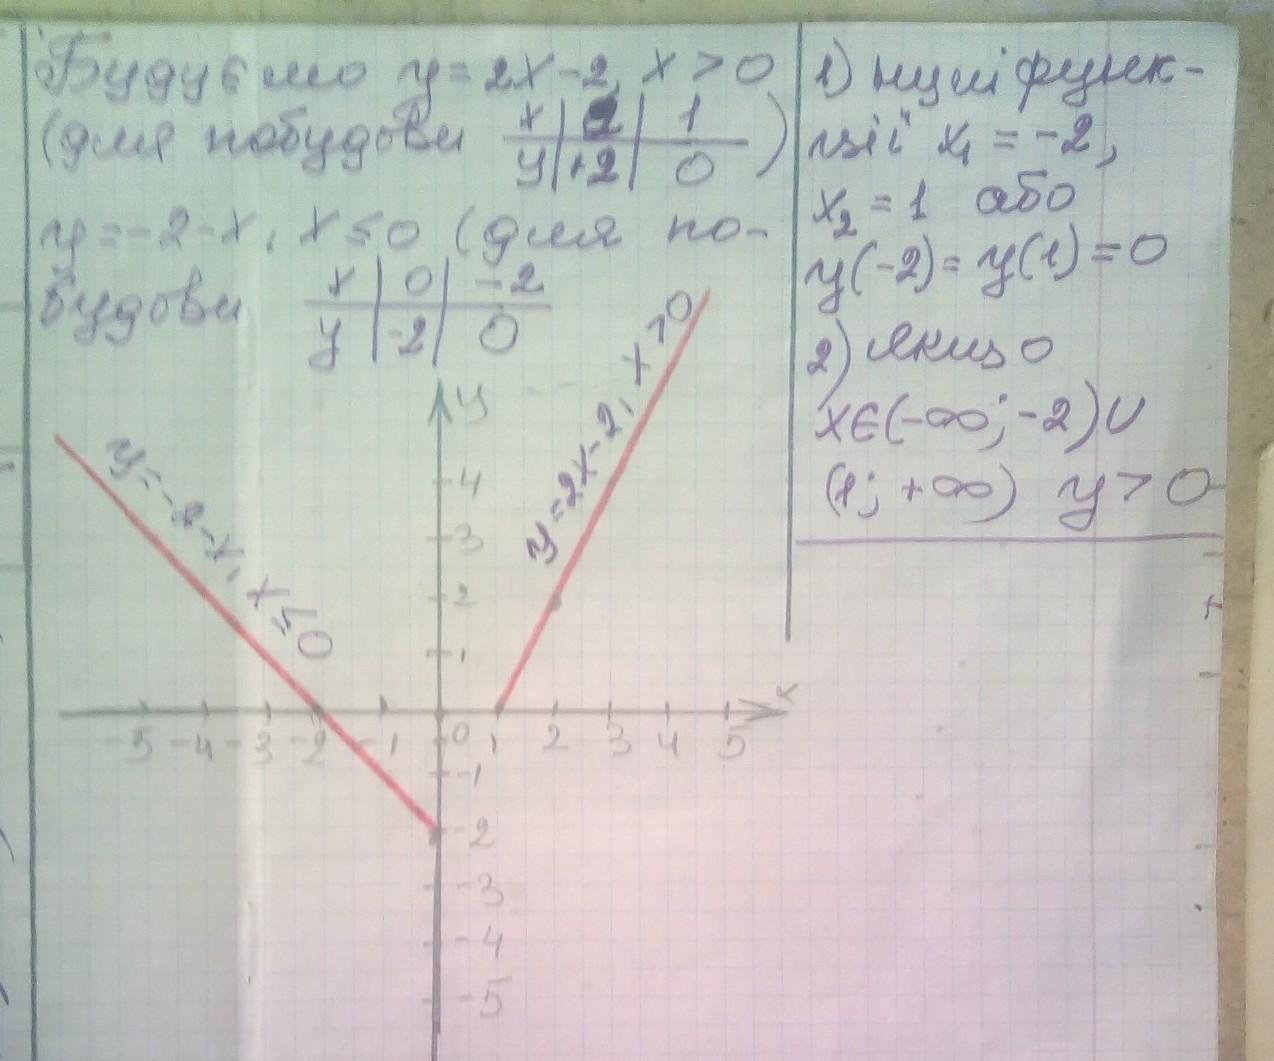 Будуємо y = 2x-2, x > 0
(для побудови x | 2 | 1
y | +2 | 0 )
y = -2-x, x ≤ 0 (для по-
будови x | 0 | -2
y | -2 | 0
y
y = -2-x, x ≤ 0
y = 2x-2, x > 0
4
3
2
1
x
-5 -4 -3 -2 -1 0 1 2 3 4 5
-1
-2
-3
-4
-5
1) нулі функ-
ції x₁ = -2,
x₂ = 1 або
y(-2) = y(1) = 0
2) якщо
x∈(-∞; -2)∪
(1; +∞) y > 0